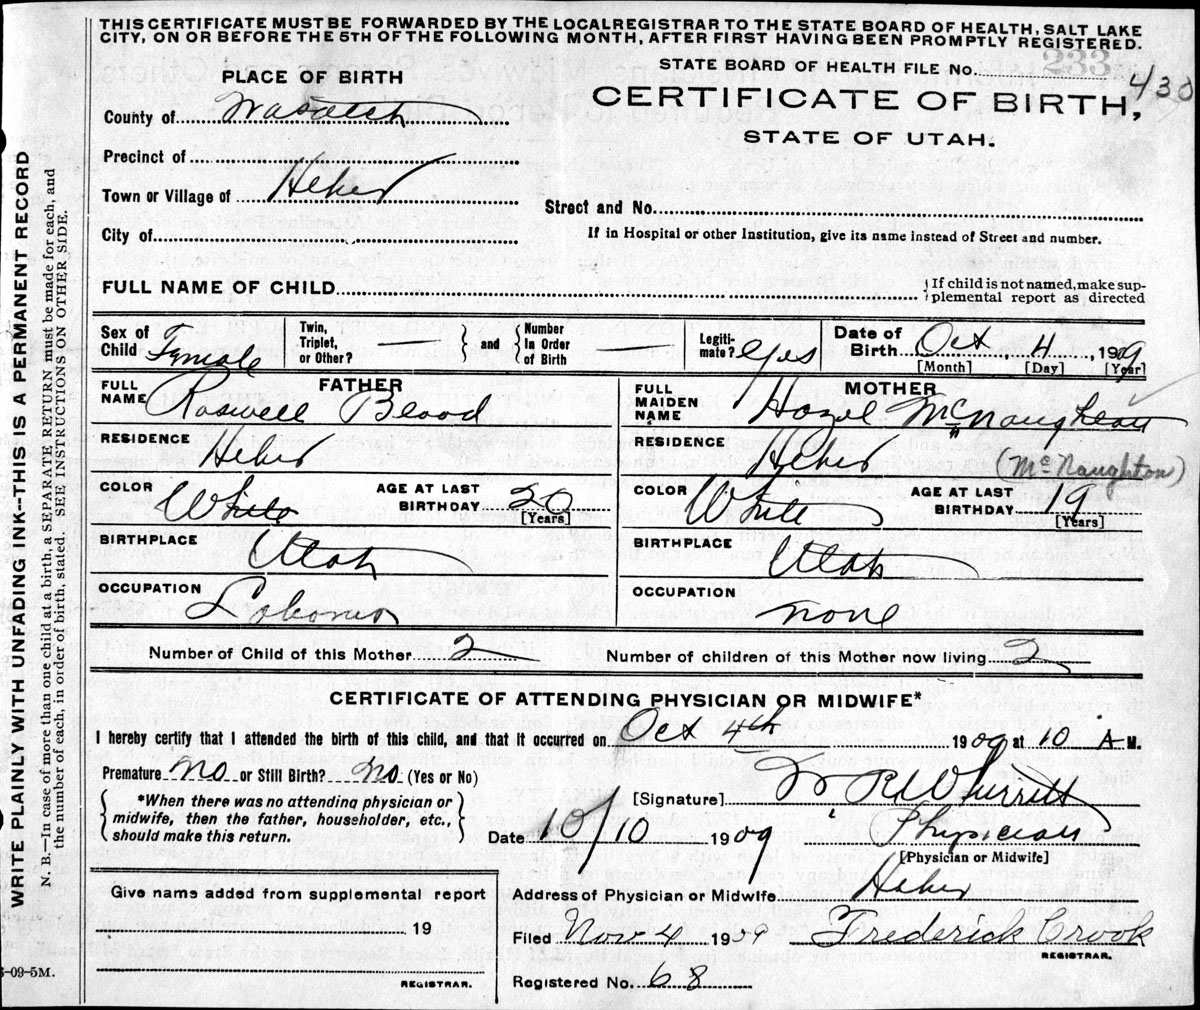 THIS CERTIFICATE MUST BE FORWARDED BY THE LOCAL REGISTRAR TO THE STATE BOARD OF HEALTH, SALT LAKE
CITY, ON OR BEFORE THE 5TH OF THE FOLLOWING MONTH, AFTER FIRST HAVING BEEN PROMPTLY REGISTERED.
STATE BOARD OF HEALTH FILE No. 233
430
PLACE OF BIRTH
CERTIFICATE OF BIRTH,
STATE OF UTAH.
County of Wasatch
Precinct of
Town or Village of Heber
Street and No.
City of
If in Hospital or other Institution, give its name instead of Street and number.
FULL NAME OF CHILD
{ If child is not named, make sup-
plemental report as directed
Sex of Child Female
Twin, Triplet, or Other? — } and { Number In Order of Birth —
Legiti-mate? Yes
Date of Birth Oct 4, 1909
[Month] [Day] [Year]
FATHER
FULL NAME Roswell Blood
RESIDENCE Heber
COLOR White AGE AT LAST BIRTHDAY 20
[Years]
BIRTHPLACE Utah
OCCUPATION
MOTHER
FULL MAIDEN NAME Hazel
RESIDENCE Heber (McNaughton)
COLOR White AGE AT LAST BIRTHDAY 19
[Years]
BIRTHPLACE Utah
OCCUPATION none
Number of Child of this Mother 2 Number of children of this Mother now living 2
CERTIFICATE OF ATTENDING PHYSICIAN OR MIDWIFE*
I hereby certify that I attended the birth of this child, and that it occurred on Oct 4th 1909 at 10 A M.
Premature no or Still Birth? no (Yes or No)
{ *When there was no attending physician or
midwife, then the father, householder, etc.,
should make this return. }
[Signature]
Date 10/10 1909 Physician
[Physician or Midwife]
Give name added from supplemental report
19
REGISTRAR.
Address of Physician or Midwife Heber
Filed Nov 4 1909 Frederick Crook
REGISTRAR.
Registered No. 68
WRITE PLAINLY WITH UNFADING INK—THIS IS A PERMANENT RECORD
N. B.—In case of more than one child at a birth, a SEPARATE RETURN must be made for each, and
the number of each, in order of birth, stated. SEE INSTRUCTIONS ON OTHER SIDE.
-09-5M.